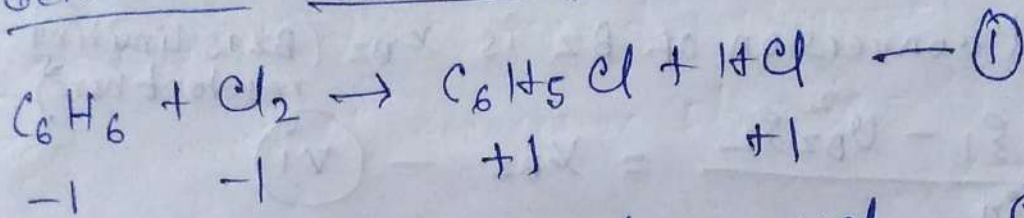 C6H6 + Cl2 → C6H5Cl + HCl — ①
-1 -1 +1 +1